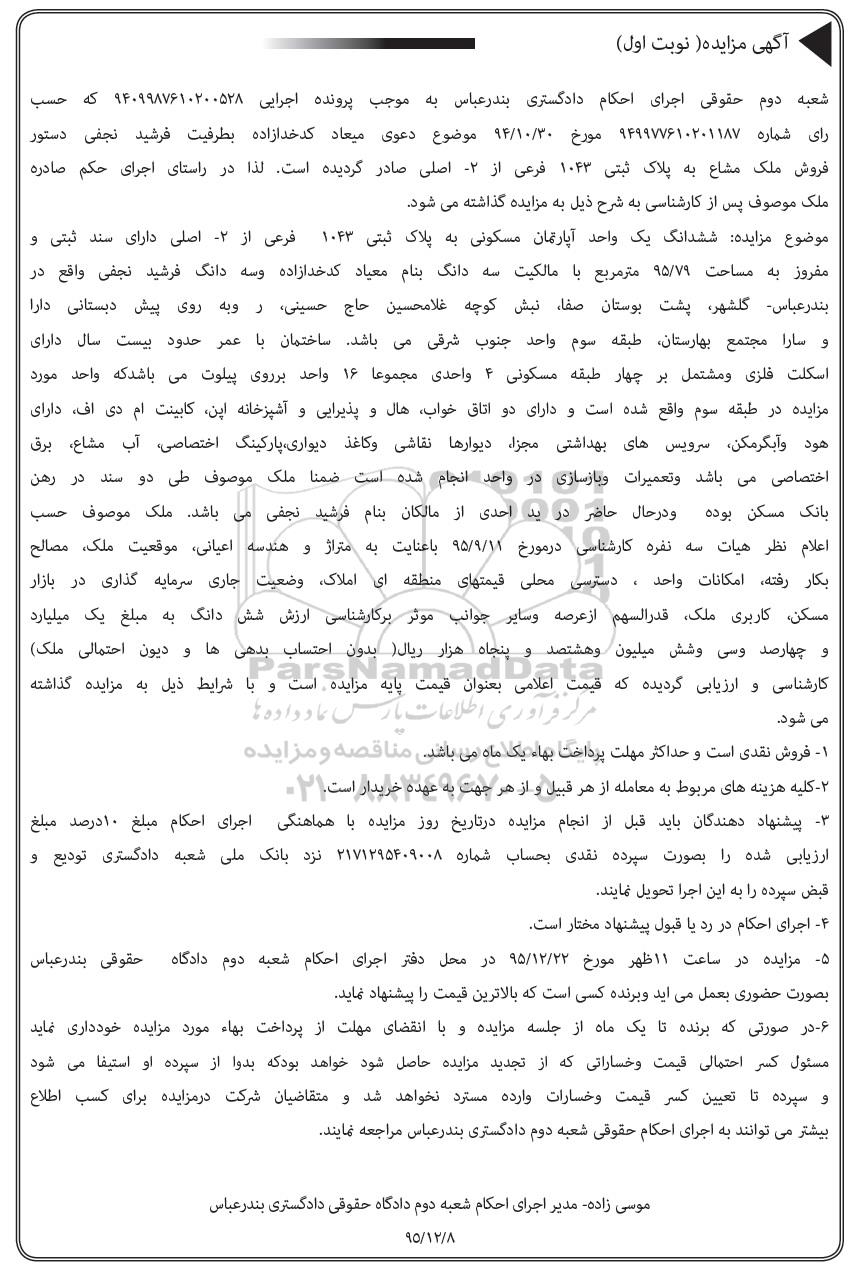 آگهی مزایده( نوبت اول)
شعبه دوم حقوقی اجرای احکام دادگستری بندرعباس به موجب پرونده اجرایی ۹۴۰۹۹۸۷۶۱۰۲۰۰۵۲۸ که حسب
رای شماره ۹۴۹۹۷۷۶۱۰۲۰۱۱۸۷ مورخ ۹۴/۱۰/۳۰ موضوع دعوی میعاد کدخدازاده بطرفیت فرشید نجفی دستور
فروش ملک مشاع به پلاک ثبتی ۱۰۴۳ فرعی از ۲- اصلی صادر گردیده است. لذا در راستای اجرای حکم صادره
ملک موصوف پس از کارشناسی به شرح ذیل به مزایده گذاشته می شود.
موضوع مزایده: ششدانگ یک واحد آپارتمان مسکونی به پلاک ثبتی ۱۰۴۳ فرعی از ۲- اصلی دارای سند ثبتی و
مفروز به مساحت ۹۵/۷۹ مترمربع با مالکیت سه دانگ بنام معیاد کدخدازاده وسه دانگ فرشید نجفی واقع در
بندرعباس- گلشهر، پشت بوستان صفا، نبش کوچه غلامحسین حاج حسینی، ر وبه روی پیش دبستانی دارا
و سارا مجتمع بهارستان، طبقه سوم واحد جنوب شرقی می باشد. ساختمان با عمر حدود بیست سال دارای
اسکلت فلزی ومشتمل بر چهار طبقه مسکونی ۴ واحدی مجموعا ۱۶ واحد برروی پیلوت می باشدکه واحد مورد
مزایده در طبقه سوم واقع شده است و دارای دو اتاق خواب، هال و پذیرایی و آشپزخانه اپن، کابینت ام دی اف، دارای
هود وآبگرمکن، سرویس های بهداشتی مجزا، دیوارها نقاشی وکاغذ دیواری،پارکینگ اختصاصی، آب مشاع، برق
اختصاصی می باشد وتعمیرات وبازسازی در واحد انجام شده است ضمنا ملک موصوف طی دو سند در رهن
بانک مسکن بوده ودرحال حاضر در ید احدی از مالکان بنام فرشید نجفی می باشد. ملک موصوف حسب
اعلام نظر هیات سه نفره کارشناسی درمورخ ۹۵/۹/۱۱ باعنایت به متراژ و هندسه اعیانی، موقعیت ملک، مصالح
بکار رفته، امکانات واحد ، دسترسی محلی قیمتهای منطقه ای املاک، وضعیت جاری سرمایه گذاری در بازار
مسکن، کاربری ملک، قدرالسهم ازعرصه وسایر جوانب موثر برکارشناسی ارزش شش دانگ به مبلغ یک میلیارد
و چهارصد وسی وشش میلیون وهشتصد و پنجاه هزار ریال( بدون احتساب بدهی ها و دیون احتمالی ملک)
کارشناسی و ارزیابی گردیده که قیمت اعلامی بعنوان قیمت پایه مزایده است و با شرایط ذیل به مزایده گذاشته
می شود.
۱- فروش نقدی است و حداکثر مهلت پرداخت بهاء یک ماه می باشد.
۲-کلیه هزینه های مربوط به معامله از هر قبیل و از هر جهت به عهده خریدار است.
۳- پیشنهاد دهندگان باید قبل از انجام مزایده درتاریخ روز مزایده با هماهنگی اجرای احکام مبلغ ۱۰درصد مبلغ
ارزیابی شده را بصورت سپرده نقدی بحساب شماره ۲۱۷۱۲۹۵۴۰۹۰۰۸ نزد بانک ملی شعبه دادگستری تودیع و
قبض سپرده را به این اجرا تحویل نمایند.
۴- اجرای احکام در رد یا قبول پیشنهاد مختار است.
۵- مزایده در ساعت ۱۱ظهر مورخ ۹۵/۱۲/۲۲ در محل دفتر اجرای احکام شعبه دوم دادگاه حقوقی بندرعباس
بصورت حضوری بعمل می اید وبرنده کسی است که بالاترین قیمت را پیشنهاد نماید.
۶-در صورتی که برنده تا یک ماه از جلسه مزایده و با انقضای مهلت از پرداخت بهاء مورد مزایده خودداری نماید
مسئول کسر احتمالی قیمت وخساراتی که از تجدید مزایده حاصل شود خواهد بودکه بدوا از سپرده او استیفا می شود
و سپرده تا تعیین کسر قیمت وخسارات وارده مسترد نخواهد شد و متقاضیان شرکت درمزایده برای کسب اطلاع
بیشتر می توانند به اجرای احکام حقوقی شعبه دوم دادگستری بندرعباس مراجعه نمایند.
موسی زاده- مدیر اجرای احکام شعبه دوم دادگاه حقوقی دادگستری بندرعباس
۹۵/۱۲/۸
ParsNamadData
مرکز فرآوری اطلاعات پارس نماد داده ها
پایگاه اطلاع رسانی مناقصه و مزایده
۰۲۱-۸۸۳۴۹۶۷۰-۵